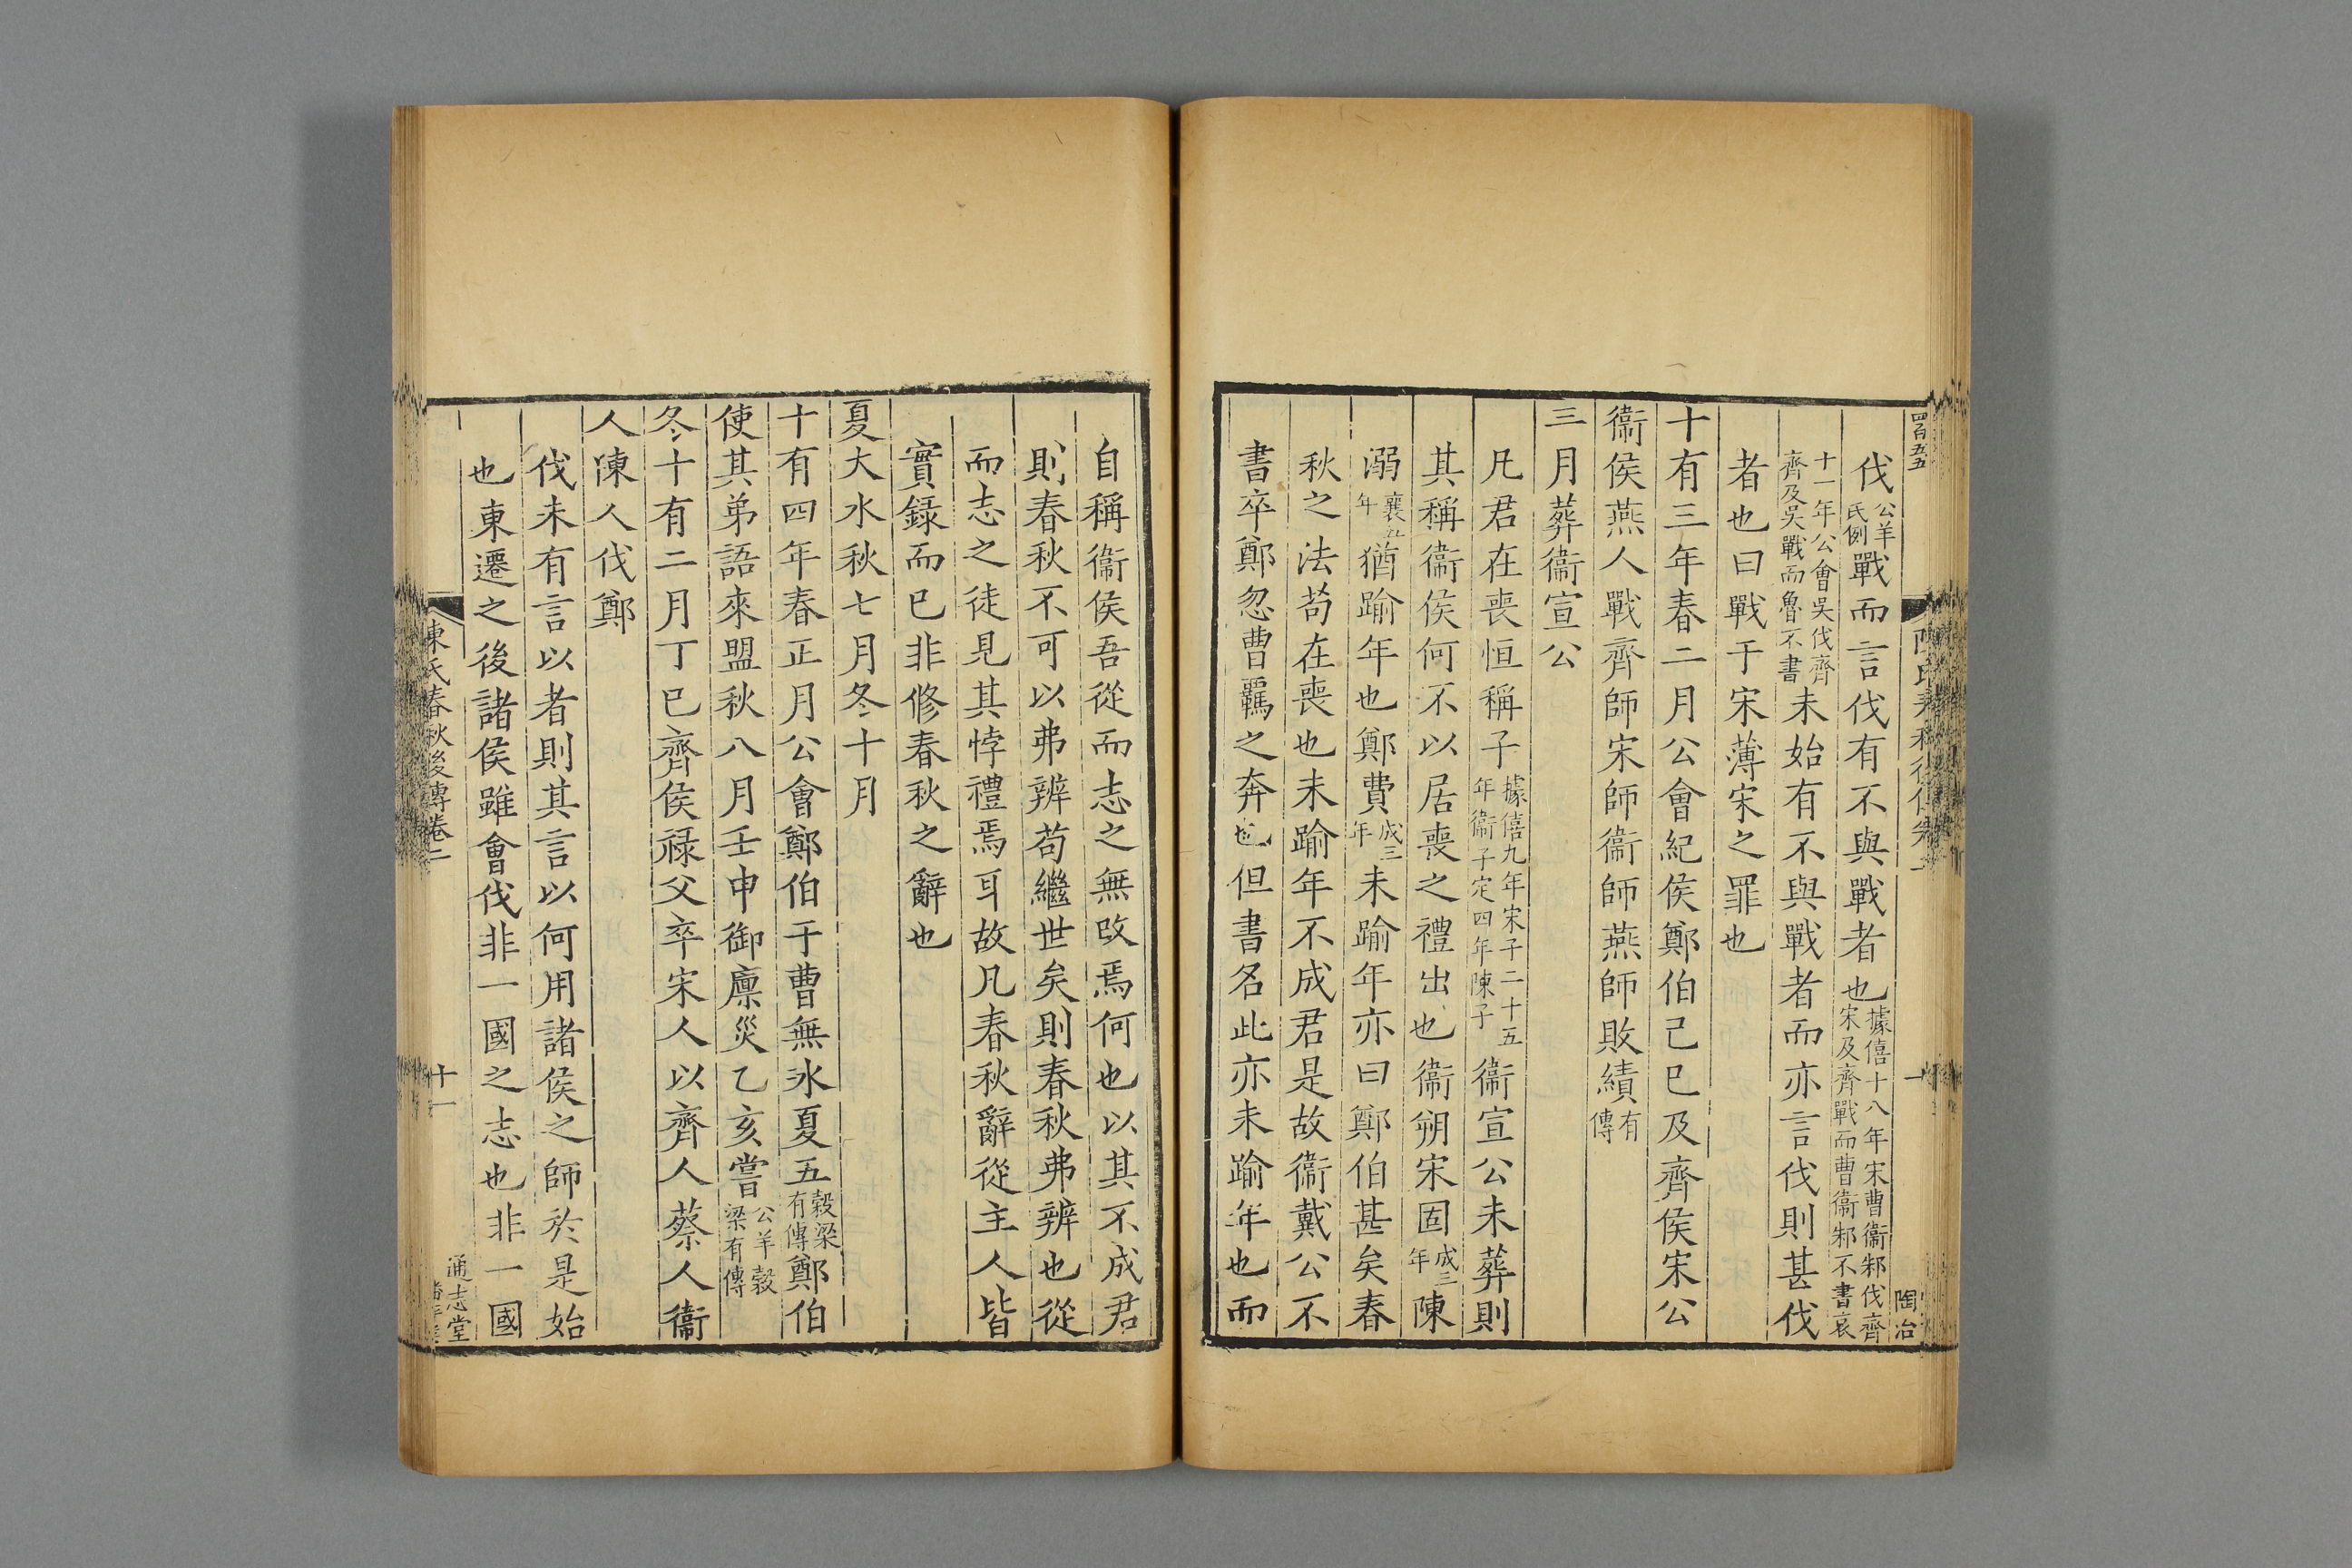 四百五五
伐公羊氏例戰而言伐有不與戰者也據僖十八年宋曹衞邾伐齊宋及齊戰而曹衞邾不書哀
十一年公會吳伐齊齊及吳戰而魯不書未始有不與戰者而亦言伐則甚伐
者也曰戰于宋薄宋之罪也
十有三年春二月公會紀侯鄭伯己巳及齊侯宋公
衞侯燕人戰齊師宋師衞師燕師敗績有傳
三月葬衞宣公
凡君在喪恒稱子據僖九年宋子二十五年衞子定四年陳子衞宣公未葬則
其稱衞侯何不以居喪之禮出也衞朔宋固成三年陳
溺襄五年猶踰年也鄭費成三年未踰年亦曰鄭伯甚矣春
秋之法苟在喪也未踰年不成君是故衞戴公不
書卒鄭忽曹羈之奔也但書名此亦未踰年也而
陶冶
自稱衞侯吾從而志之無改焉何也以其不成君
則春秋不可以弗辨苟繼世矣則春秋弗辨也從
而志之徒見其悖禮焉耳故凡春秋辭從主人皆
實録而已非修春秋之辭也
夏大水秋七月冬十月
十有四年春正月公會鄭伯于曹無冰夏五穀梁有傳鄭伯
使其弟語來盟秋八月壬申御廩災乙亥嘗公羊穀梁有傳
冬十有二月丁巳齊侯禄父卒宋人以齊人蔡人衞
人陳人伐鄭
伐未有言以者則其言以何用諸侯之師於是始
也東遷之後諸侯雖會伐非一國之志也非一國
陳氏春秋後傳卷二
十一
通志堂